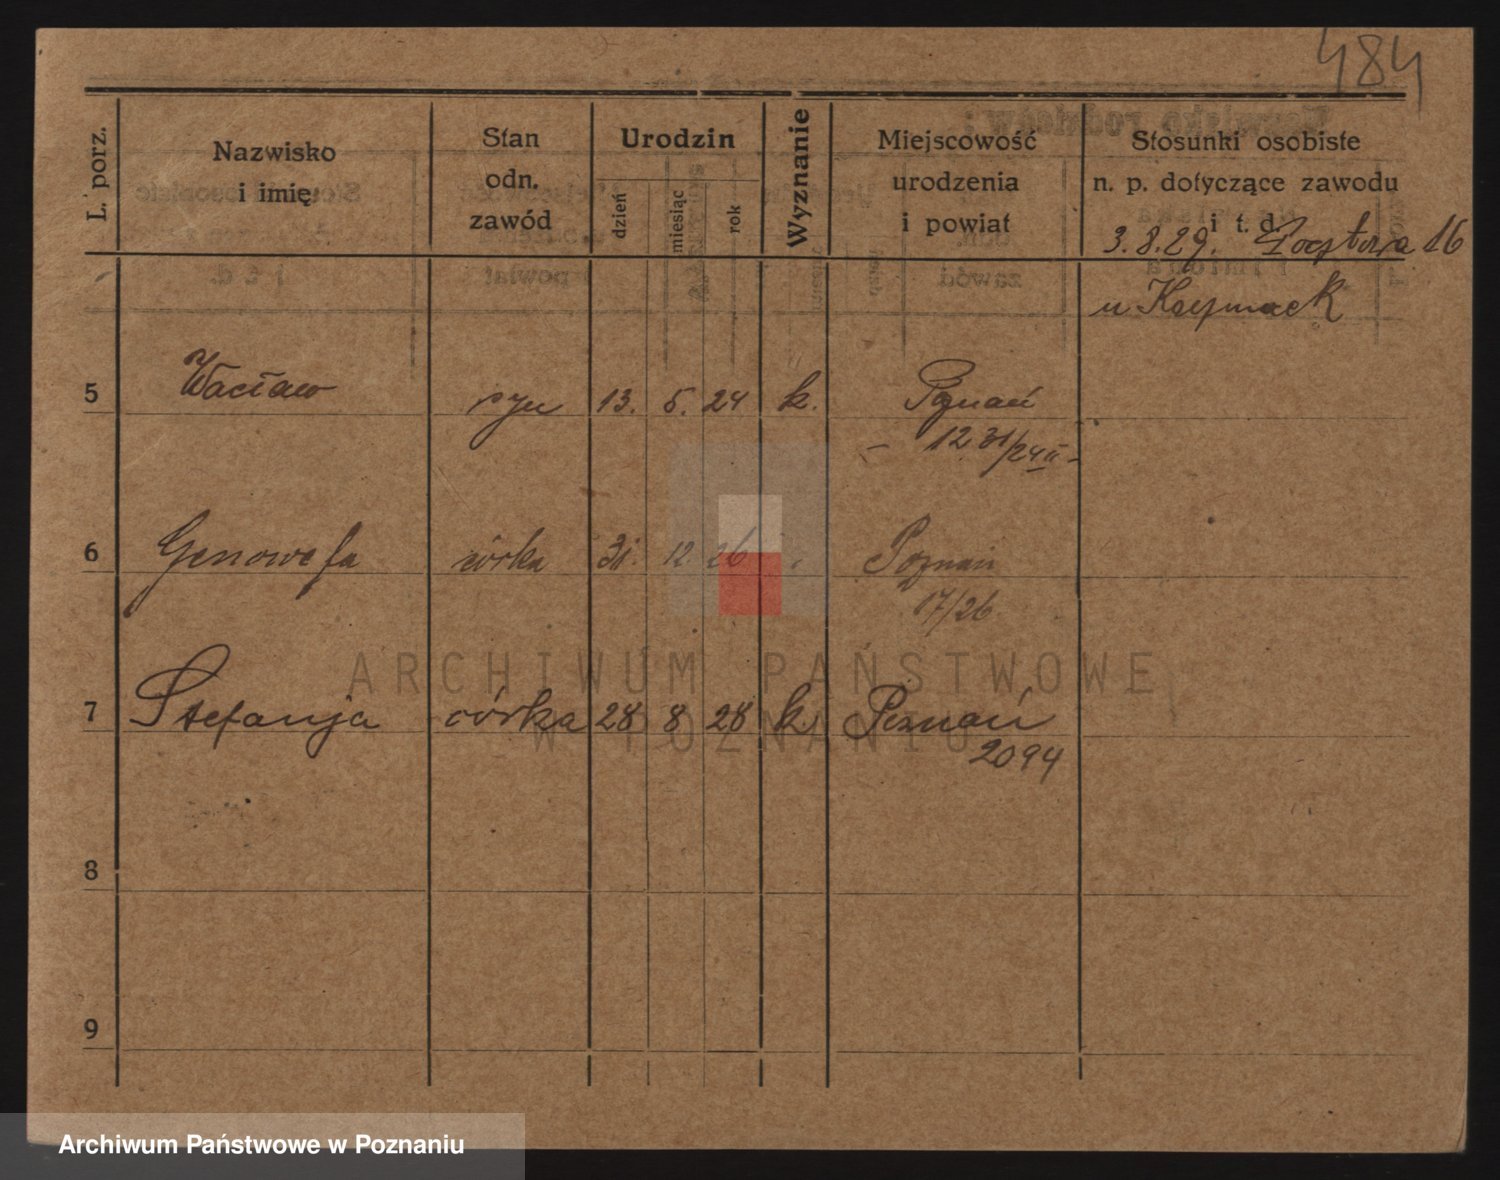 484
L. porz.
Nazwisko
i imię
Stan
odn.
zawód
Urodzin
dzień
miesiąc
rok
Wyznanie
Miejscowość
urodzenia
i powiat
Stosunki osobiste
n. p. dotyczące zawodu
i t. d.
3.8.29. Pocztowa 16
u Kaczmarek
5 Wacław syn 13. 5. 24 k. Poznań
6 Genowefa córka 31. 12. 26 Poznań
17/26
7 Stefanja córka 28 8 28 k Poznań
2094
8
9
ARCHIWUM PAŃSTWOWE
W POZNANIU
Archiwum Państwowe w Poznaniu